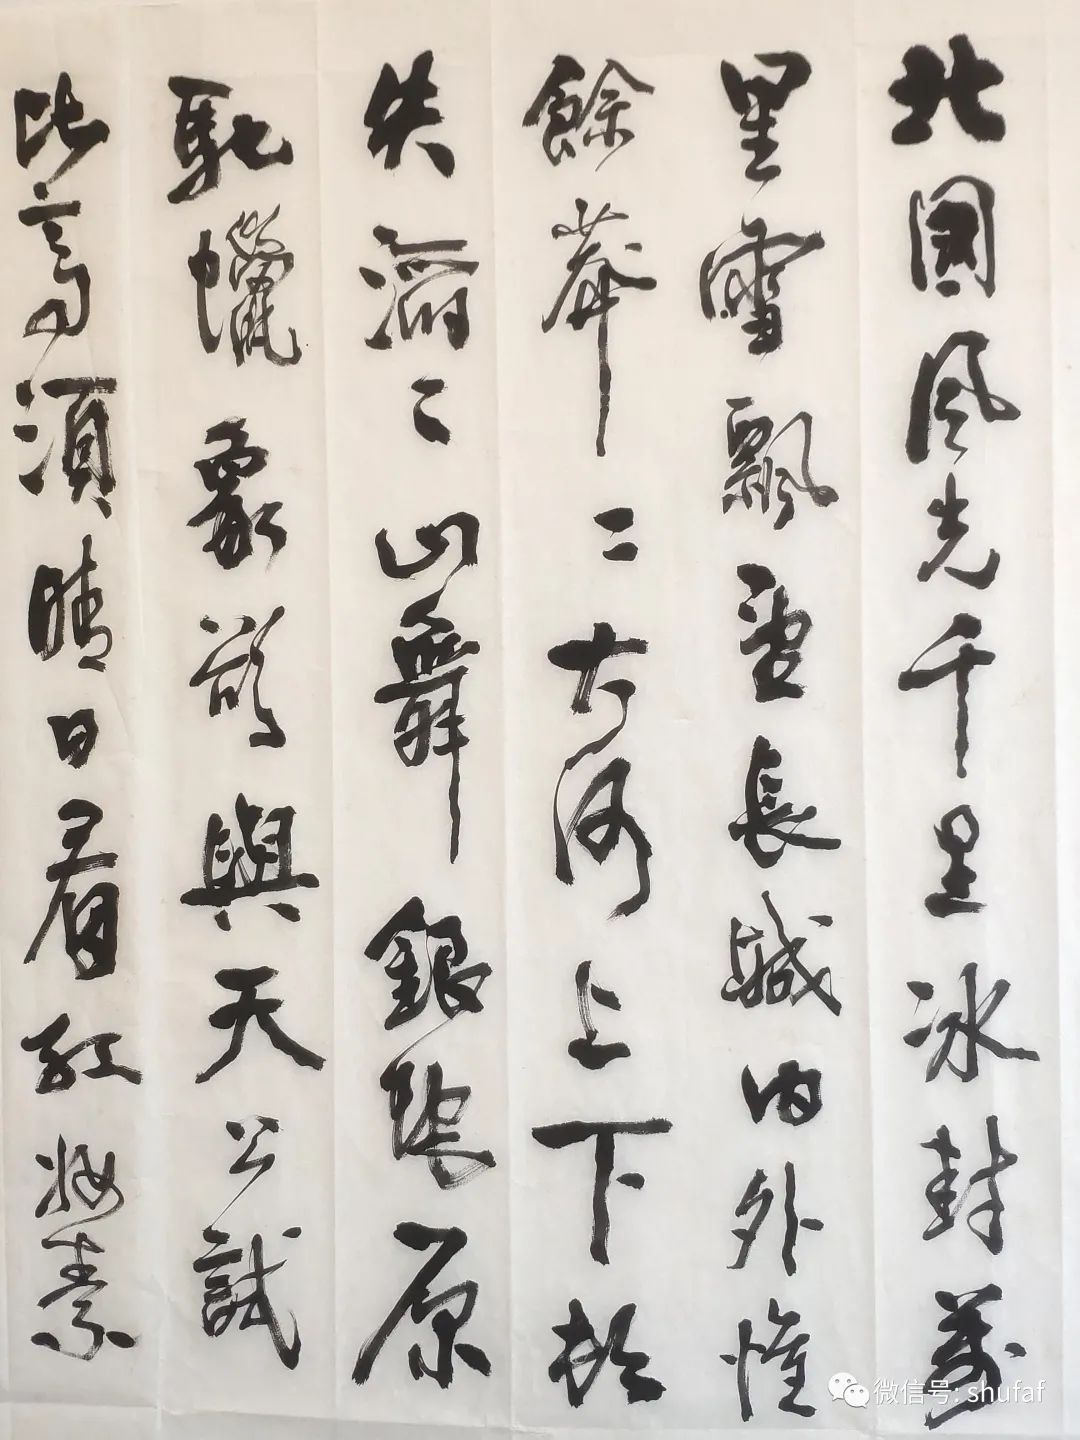 北國風光千里冰封萬
里雪飄望長城內外惟
餘莽二大河上下頓
失滔二山舞銀蛇原
馳蠟象欲與天公試
比高須晴日看紅妝素
微信号: shufaf